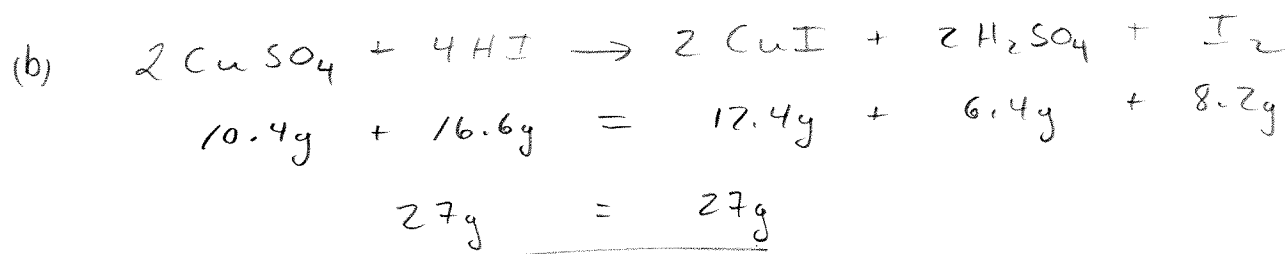 (b) 2 CuSO₄ + 4HI → 2 CuI + 2 H₂SO₄ + I₂
10.4g + 16.6g = 12.4g + 6.4g + 8.2g
27g = 27g